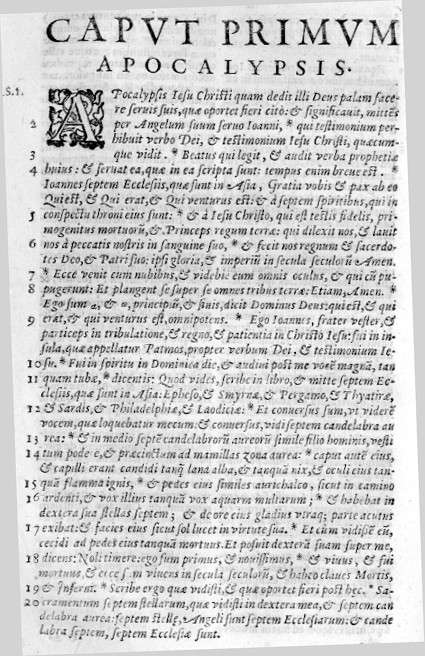 CAPVT PRIMVM
APOCALYPSIS.
S.1. APocalypsis Iesu Christi quam dedit illi Deus palam face-
re seruis suis, quæ oportet fieri citò: & significauit, mittẽs
2 per Angelum suum seruo Ioanni, * qui testimonium per-
hibuit verbo Dei, & testimonium Iesu Christi, quæcum-
3 que vidit. * Beatus qui legit, & audit verba prophetiæ
4 huius: & seruat ea, quæ in ea scripta sunt: tempus enim breue est. *
Ioannes septem Ecclesiis, quæ sunt in Asia, Gratia vobis & pax ab eo
Qui est, & Qui erat, & Qui venturus est: & à septem spiritibus, qui in
5 conspectu throni eius sunt: * & à Iesu Christo, qui est testis fidelis, pri-
mogenitus mortuorũ, & Princeps regum terræ: qui dilexit nos, & lauit
6 nos à peccatis nostris in sanguine suo, * & fecit nos regnum & sacerdo-
tes Deo, & Patri suo: ipsi gloria, & imperiũ in secula seculorũ Amen.
7 * Ecce venit cum nubibus, & videbit eum omnis oculus, & qui eũ pu-
8 pugerunt: Et plangent se super se omnes tribus terræ: Etiam, Amen. *
Ego sum α, & ω, principiũ, & finis, dicit Dominus Deus: qui est, & qui
9 erat, & qui venturus est, omnipotens. * Ego Ioannes, frater vester, &
particeps in tribulatione, & regno, & patientia in Christo Iesu: fui in in-
sula, quæ appellatur Patmos, propter verbum Dei, & testimonium Ie-
10 su. * Fui in spiritu in Dominica die, & audiui post me vocẽ magnã, tan
11 quam tubæ, * dicentis: Quod vides, scribe in libro, & mitte septem Ec-
clesiis, quæ sunt in Asia: Epheso, & Smyrnæ, & Pergamo, & Thyatiræ,
12 & Sardis, & Philadelphiæ, & Laodiciæ: * Et conuersus sum, vt viderẽ
vocem, quæ loquebatur mecum: & conuersus, vidi septem candelabra au
13 rea: * & in medio septẽ candelabrorũ aureorũ simile filio hominis, vesti
14 tum podere, & præcinctum ad mamillas zona aurea: * caput autẽ eius,
& capilli erant candidi tanq̃ lana alba, & tanquã nix, & oculi eius tan-
15 quã flamma ignis, * & pedes eius similes aurichalco, sicut in camino
16 ardenti, & vox illius tanquã vox aquarum multarum; * & habebat in
dextera sua stellas septem; & de ore eius gladius vtraq; parte acutus
17 exibat: & facies eius sicut sol lucet in virtute sua. * Et cùm vidissẽ eũ,
cecidi ad pedes eius tanquã mortuus. Et posuit dexterã suam super me,
18 dicens: Noli timere: ego sum primus, & nouissimus, * & viuus, & fui
mortuus, & ecce sum viuens in secula seculorũ, & habeo claues Mortis,
19 & Inferni. * Scribe ergo quæ vidisti, & quæ oportet fieri post hęc. * Sa-
20 cramentum septem stellarum, quæ vidisti in dextera mea, & septem can
delabra aurea: septem stellę, Angeli sunt septem Ecclesiarum: & cande
labra septem, septem Ecclesiæ sunt.